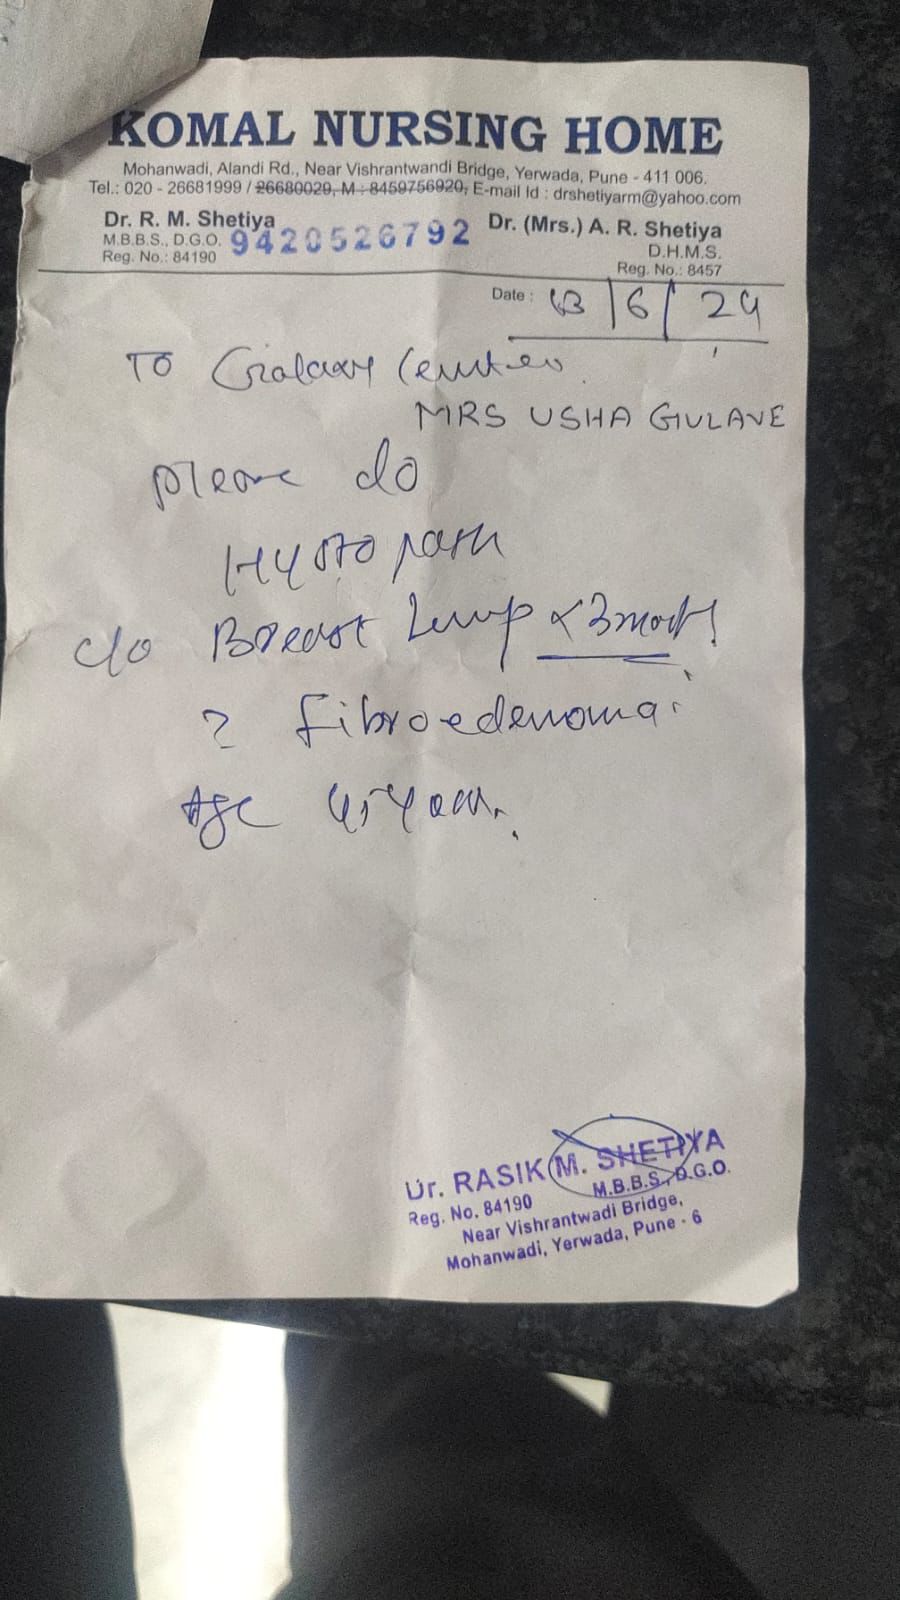 KOMAL NURSING HOME
Mohanwadi, Alandi Rd., Near Vishrantwandi Bridge, Yerwada, Pune - 411 006.
Tel.: 020 - 26681999 / 26680029, M : 8459756920, E-mail Id : drshetiyarm@yahoo.com
Dr. R. M. Shetiya
M.B.B.S., D.G.O.
Reg. No.: 84190
9420526792
Dr. (Mrs.) A. R. Shetiya
D.H.M.S.
Reg. No.: 8457
Date : 13/6/24
TO Galaxy Center
MRS USHA GULAVE
please do
Hysto path
c/o Breast Lump x 3 month
? fibroedenoma
Age 45 year
Dr. RASIK M. SHETIYA
M.B.B.S., D.G.O.
Reg. No. 84190
Near Vishrantwadi Bridge,
Mohanwadi, Yerwada, Pune - 6